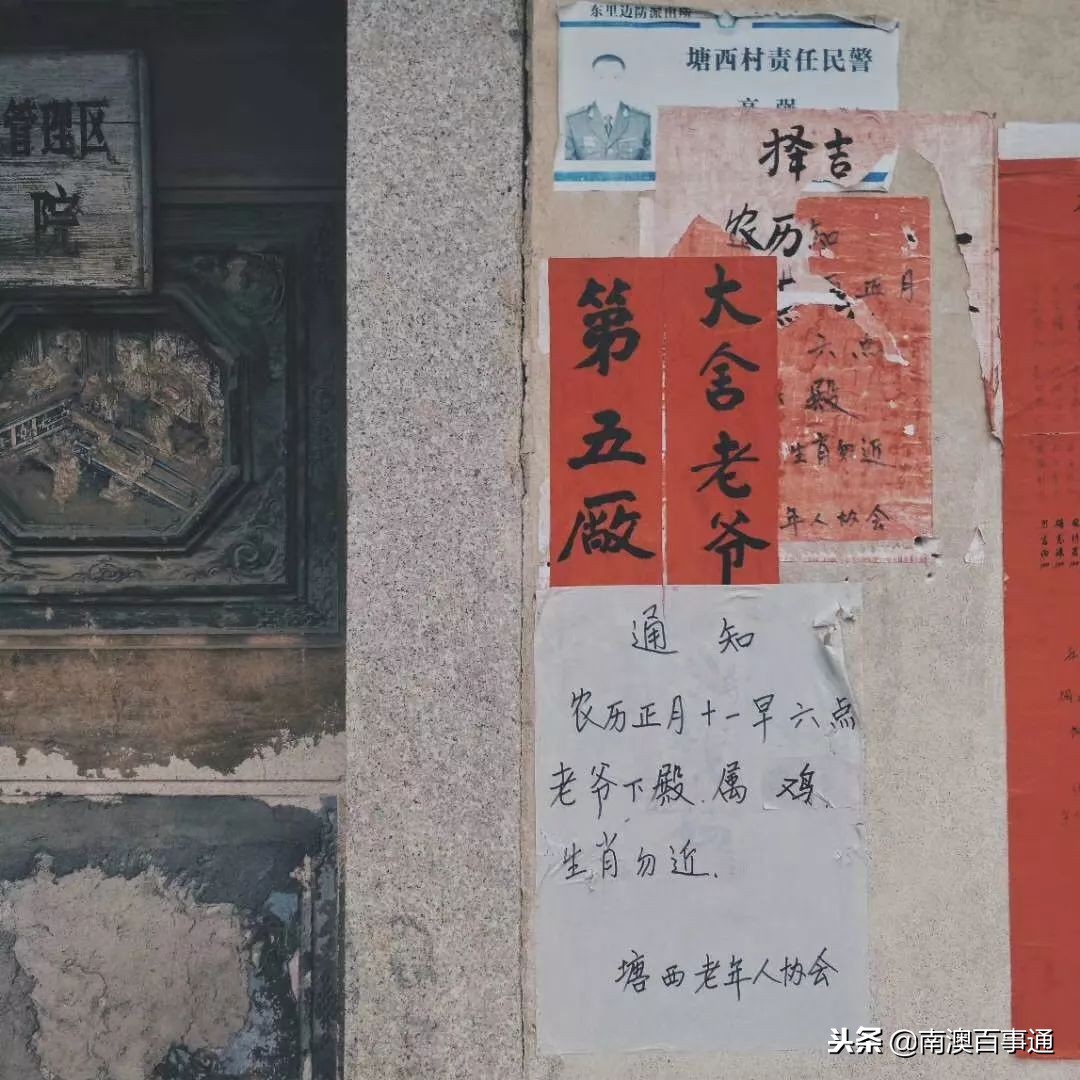 管理区
院
东里边防派出所
塘西村责任民警
高强
择吉
农历
知
正月
六点
殿
生肖勿近
年人协会
大舍老爷
第五厰
通知
农历正月十一早六点
老爷下殿.属鸡
生肖勿近.
塘西老年人协会
头条@南澳百事通